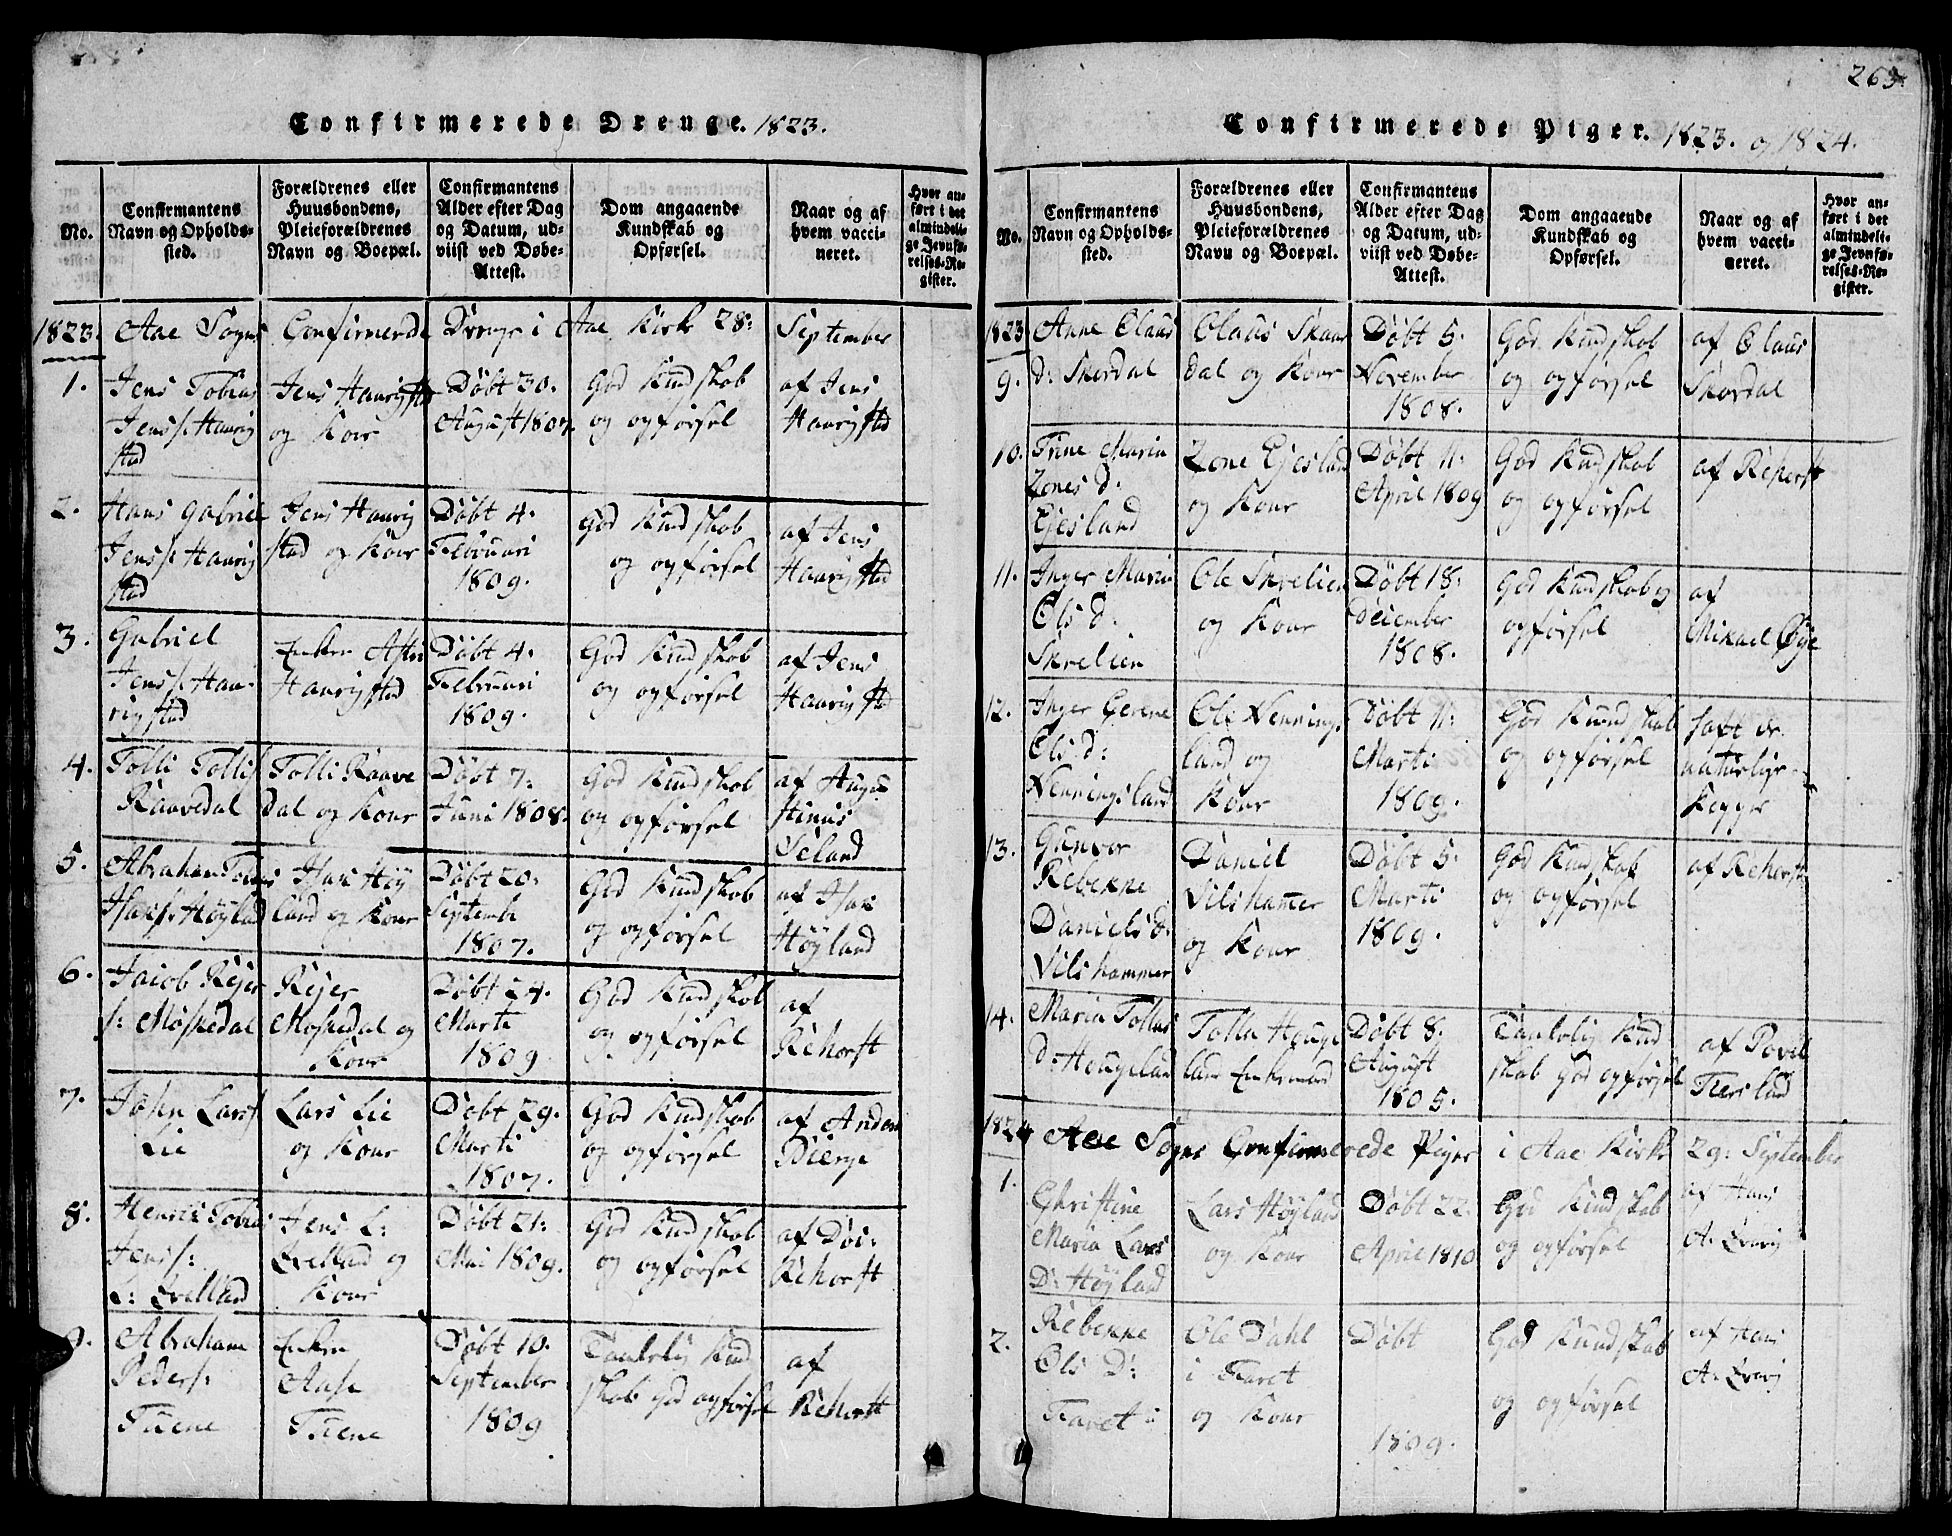 263
Confirmerede Drenge. 1823.
No.
Confirmantens Navn og Opholds-sted.
Forældrenes eller Huusbondens, Pleieforældrenes Navn og Boepæl.
Confirmantens Alder efter Dag og Datum, ud-viist ved Døbe-Attest.
Dom angaaende Kundskab og Opførsel.
Naar og af hvem vacci-neret.
Hvor an-ført i det almindeli-ge Jevnfø-relses-Re-gister.
1823. Aae Sogns Confirmerde Drenge i Aae Kirke 28: September
1. Jens Tobias Jens s: Haurig stad
Jens Haurigstad og Kone
Døbt 30. August 1807.
God Kundskob og opførsel
af Jens Haurigstad
2. Hans Gabriel Jens s: Haurig stad
Jens Haurig stad og Kone
Døbt 4. Februari 1809.
God Kundskob og opførsel
af Jens Haurigstad
3. Gabriel Jens s: Hau-rigstad
Enken Haurigstad
Døbt 4: Februari 1809.
God Kundskob og opførsel
af Jens Haurigstad
4. Tolli Tollis Raavedal
Tolli Raave dal og Kone
Døbt 7: Juni 1808.
God Kundskob og opførsel
af Augu stinus Seland
5. Abraham Tobias Isac s: Høyland
Isac Høy land og Kone
Døbt 20: Septembe 1807.
God Kundskob og opførsel
af Isac Høyland
6. Jacob Rejer s: Moskedal
Rejer Moskedal og Kone
Døbt 24. Marti 1809
God Kundskob og opførsel
af Rehorst
7. John Lars s Lie
Lars Lie og Kone
Døbt 29. Marti 1807.
God Kundskob og opførsel
af Anders Bierge
8. Henrik Tobias Jens s: L: Qvelland
Jens L: Qvelland og Kone
Døbt 21: Mai 1809.
God Kundskob og opførsel
af Doc: Rehorst
9. Abraham Peders: Tuene
Enken Aase Tuene
Døbt 10. September 1809
Taalelig Kund skob God opførsel
af Rehorst
Confirmerede Piger. 1823. og 1824.
No.
Confirmantens Navn og Opholds-sted.
Forældrenes eller Huusbondens, Pleieforældrenes Navn og Boepæl.
Confirmantens Alder efter Dag og Datum, ud-viist ved Døbe-Attest.
Dom angaaende Kundskab og Opførsel.
Naar og af hvem vacci-neret.
Hvor an-ført i det almindeli-ge Jevnfø-relses-Re-gister.
1823
9. Anne Claus d: Skordal
Claus Skaar dal og Kone
Døbt 5. November 1808.
God Kundskob og opførsel
af Claus Skordal
10. Trine Maria Zones d. Ejesland
Zone Ejesland og Kone
Døbt 11: April 1809
God Kundskob og opførsel
af Rehorst
11. Inger Maria Ols d. Skrelien
Ole Skrelien og Kone
Døbt 18: December 1808.
God Kundskob og opførsel
af Mikael Øye
12. Inger Gerene Ols d: Nenningsland
Ole Nennings land og Kone
Døbt 11: Marti 1809.
God Kundskab og opførsel
haft de naturlige Kopper
13. Gunvor Rebekke Daniels d. Silishammer
Daniel Silishamer og Kone
Døbt 5: Marti 1809.
God Kundskab og opførsel
af Rehorst
14. Maria Tollas d: Hougeland
Tolla Houge land Enkemand
Døbt 8. August 1805.
Taalelig Kund skab God opførsel
af Povel Fiersland
1824 Aae Sogns Confirmerede Piger i Aae Kirke 29: September
1. Christine Maria Lars D: Høyland
Lars Høyland og Kone
Døbt 22. April 1810
God Kundskab og opførsel
af Hans A.
2. Rebekke Ols D: Faret
Ole Dahl i Faret og Kone
Døbt 1809.
God Kundskab og opførsel
af Hans A.